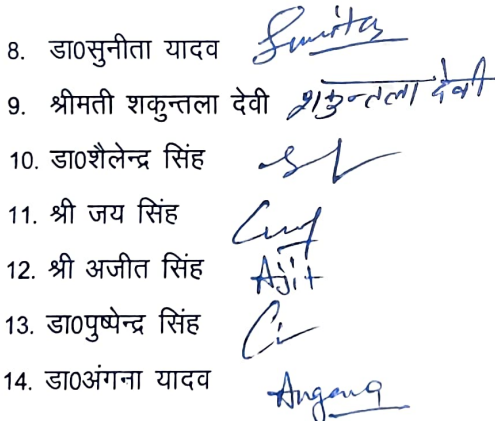 8. डा0सुनीता यादव Sunita
9. श्रीमती शकुन्तला देवी शकुन्तला देवी
10. डा0शैलेन्द्र सिंह
11. श्री जय सिंह
12. श्री अजीत सिंह Ajit
13. डा0पुष्पेन्द्र सिंह
14. डा0अंगना यादव Angana